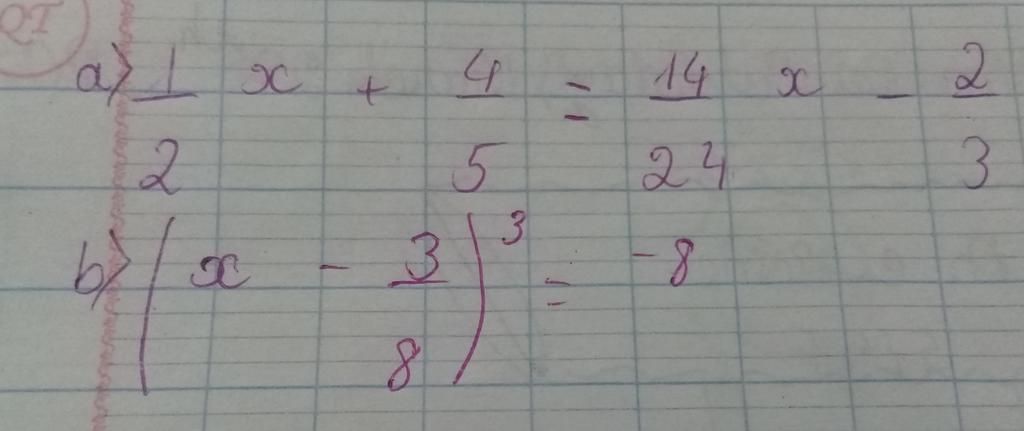 QI
a) 1/2 x + 4/5 = 14/24 x - 2/3
b) (x - 3/8)³ = -8